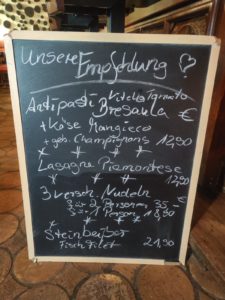 Unsere
Empfehlung
Antipasti Vitello Tonnato
Bresaola €
+ Käse Mangiego
+ geb. Champignons 12,90
Lasagne Piemontese
12,90
3 versch. Nudeln €
für 2 Personen 35,-
für 1 Person 18,90
Steinbeißer
Fisch Filet 21,90